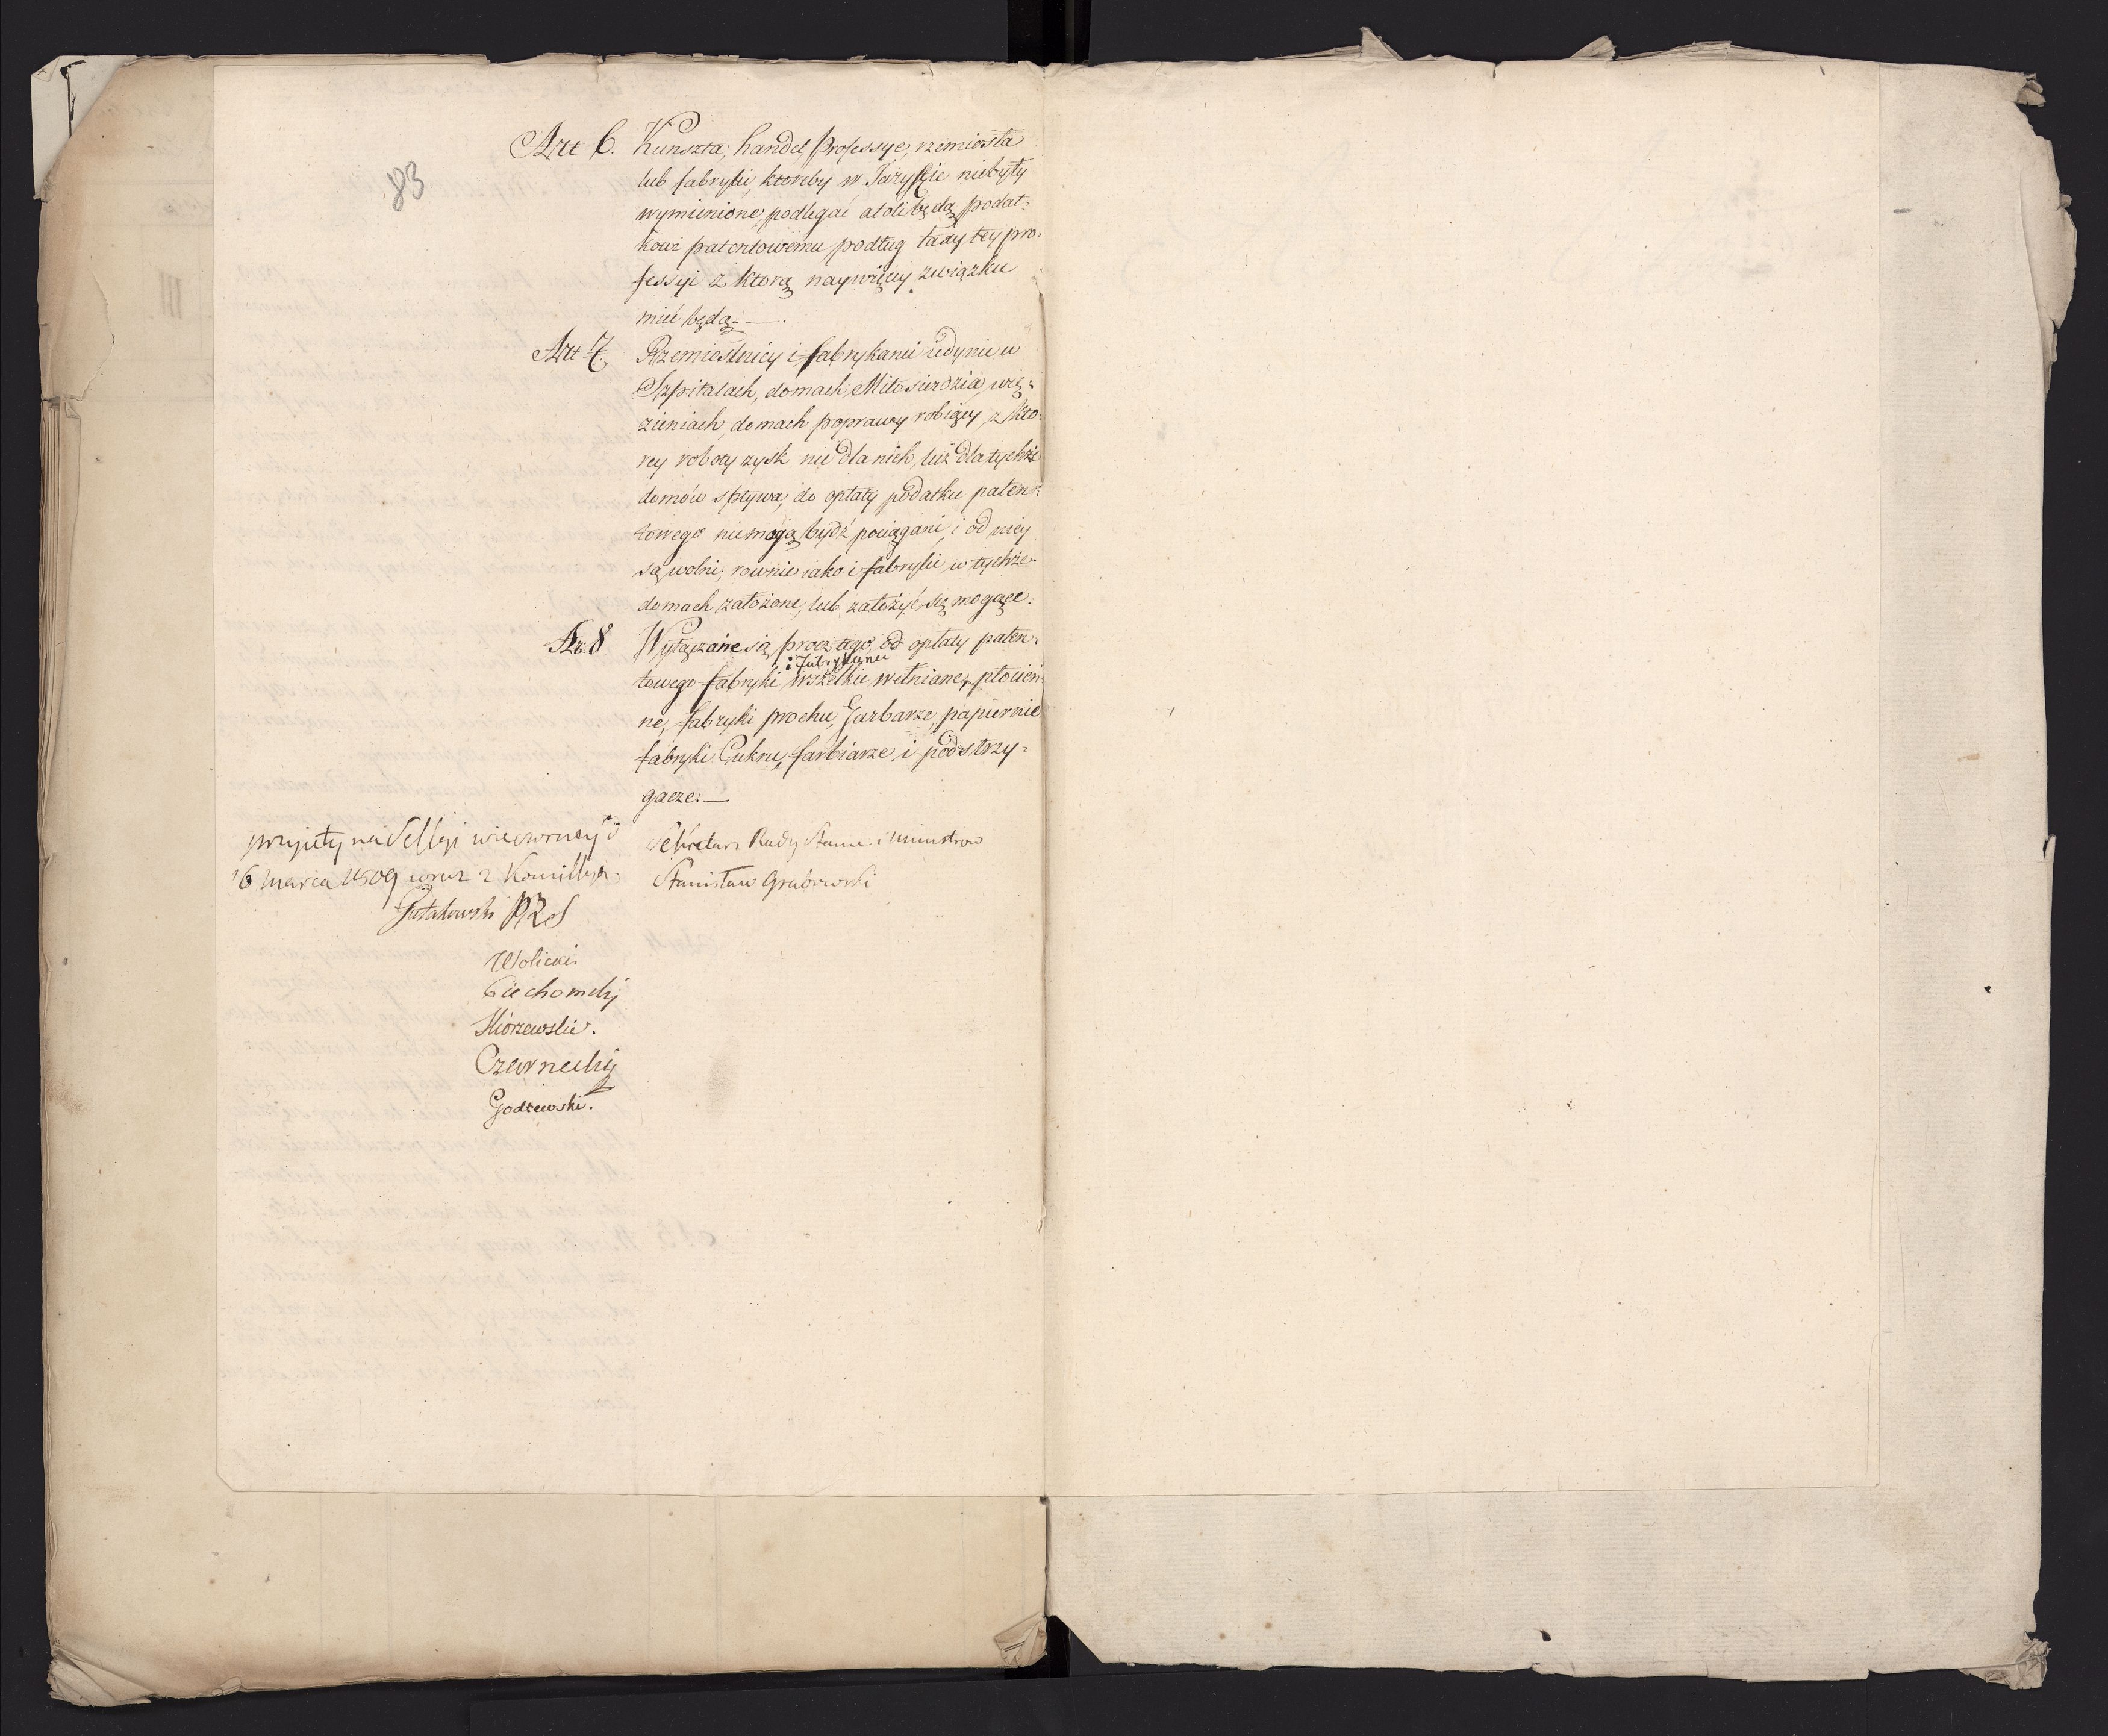 83
Art 6. Kunszta, handel, Professye, rzemiosła
lub fabryki, ktoreby w Taryffie niebyły
wymienione, podlegać atoli będą podat=
kowi patentowemu podług taxy tey pro=
fessyi z ktorą naywięcy związku
mieć będą. —
Art 7. Rzemieslnicy i fabrykanci iedynie w
Szpitalach, domach Miłosierdzia, wię=
zieniach, domach poprawy robiący, z kto=
rey roboty zysk nie dla nich, leż dla tychże
domów spływa, do opłaty podatku paten=
towego niemogą bydź pociągani, i od niey
są wolni, rownie iako i fabryki w tychże
domach założone, lub założyć się mogące.
Ar. 8 Wyłączone są procz tego od opłaty paten=
i Fabrykanci
towego fabryki wszelkie wełniane, płocien=
ne, fabryki prochu, Garbarze, papiernie
fabryki Cukru, farbiarze i podstrzy=
gacze. —
przyięty na Sessyi wieczorney d
16 marca 1809 wraz z Kommissyą
PRS
Wolicki
Ciechomski
Czarnecki
Godlewski.
Sekretarz Rady Stanu i Ministrow
Stanisław Grabowski